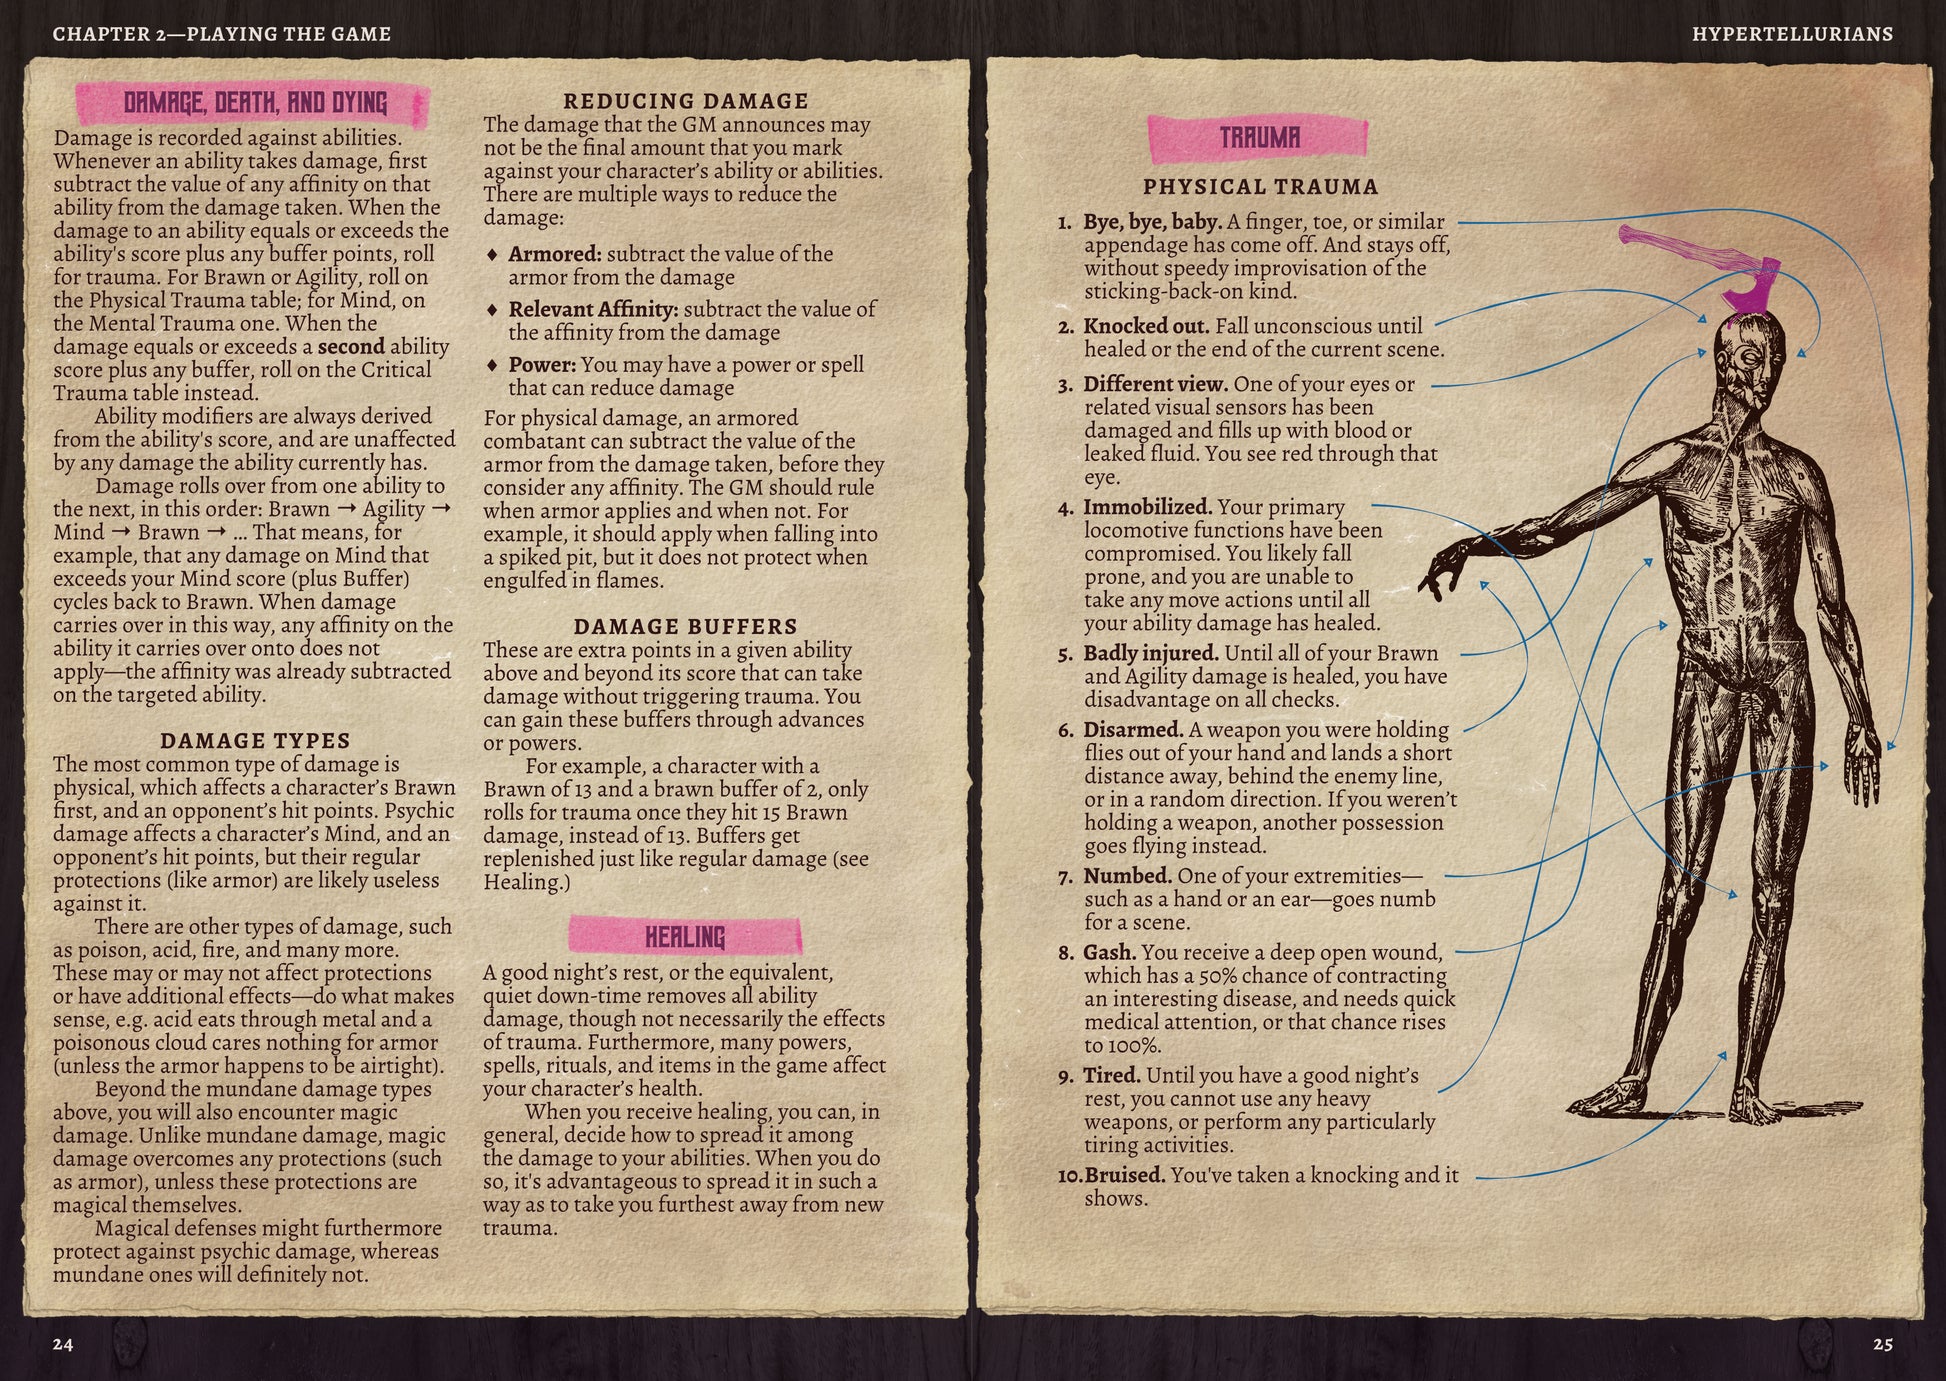 CHAPTER 2—PLAYING THE GAME
DAMAGE, DEATH, AND DYING
Damage is recorded against abilities.
Whenever an ability takes damage, first
subtract the value of any affinity on that
ability from the damage taken. When the
damage to an ability equals or exceeds the
ability's score plus any buffer points, roll
for trauma. For Brawn or Agility, roll on
the Physical Trauma table; for Mind, on
the Mental Trauma one. When the
damage equals or exceeds a second ability
score plus any buffer, roll on the Critical
Trauma table instead.
Ability modifiers are always derived
from the ability's score, and are unaffected
by any damage the ability currently has.
Damage rolls over from one ability to
the next, in this order: Brawn → Agility →
Mind → Brawn → … That means, for
example, that any damage on Mind that
exceeds your Mind score (plus Buffer)
cycles back to Brawn. When damage
carries over in this way, any affinity on the
ability it carries over onto does not
apply—the affinity was already subtracted
on the targeted ability.
DAMAGE TYPES
The most common type of damage is
physical, which affects a character’s Brawn
first, and an opponent’s hit points. Psychic
damage affects a character’s Mind, and an
opponent’s hit points, but their regular
protections (like armor) are likely useless
against it.
There are other types of damage, such
as poison, acid, fire, and many more.
These may or may not affect protections
or have additional effects—do what makes
sense, e.g. acid eats through metal and a
poisonous cloud cares nothing for armor
(unless the armor happens to be airtight).
Beyond the mundane damage types
above, you will also encounter magic
damage. Unlike mundane damage, magic
damage overcomes any protections (such
as armor), unless these protections are
magical themselves.
Magical defenses might furthermore
protect against psychic damage, whereas
mundane ones will definitely not.
24
REDUCING DAMAGE
The damage that the GM announces may
not be the final amount that you mark
against your character’s ability or abilities.
There are multiple ways to reduce the
damage:
♦ Armored: subtract the value of the
armor from the damage
♦ Relevant Affinity: subtract the value of
the affinity from the damage
♦ Power: You may have a power or spell
that can reduce damage
For physical damage, an armored
combatant can subtract the value of the
armor from the damage taken, before they
consider any affinity. The GM should rule
when armor applies and when not. For
example, it should apply when falling into
a spiked pit, but it does not protect when
engulfed in flames.
DAMAGE BUFFERS
These are extra points in a given ability
above and beyond its score that can take
damage without triggering trauma. You
can gain these buffers through advances
or powers.
For example, a character with a
Brawn of 13 and a brawn buffer of 2, only
rolls for trauma once they hit 15 Brawn
damage, instead of 13. Buffers get
replenished just like regular damage (see
Healing.)
HEALING
A good night’s rest, or the equivalent,
quiet down-time removes all ability
damage, though not necessarily the effects
of trauma. Furthermore, many powers,
spells, rituals, and items in the game affect
your character’s health.
When you receive healing, you can, in
general, decide how to spread it among
the damage to your abilities. When you do
so, it's advantageous to spread it in such a
way as to take you furthest away from new
trauma.
HYPERTELLURIANS
TRAUMA
PHYSICAL TRAUMA
1. Bye, bye, baby. A finger, toe, or similar
appendage has come off. And stays off,
without speedy improvisation of the
sticking-back-on kind.
2. Knocked out. Fall unconscious until
healed or the end of the current scene.
3. Different view. One of your eyes or
related visual sensors has been
damaged and fills up with blood or
leaked fluid. You see red through that
eye.
4. Immobilized. Your primary
locomotive functions have been
compromised. You likely fall
prone, and you are unable to
take any move actions until all
your ability damage has healed.
5. Badly injured. Until all of your Brawn
and Agility damage is healed, you have
disadvantage on all checks.
6. Disarmed. A weapon you were holding
flies out of your hand and lands a short
distance away, behind the enemy line,
or in a random direction. If you weren’t
holding a weapon, another possession
goes flying instead.
7. Numbed. One of your extremities—
such as a hand or an ear—goes numb
for a scene.
8. Gash. You receive a deep open wound,
which has a 50% chance of contracting
an interesting disease, and needs quick
medical attention, or that chance rises
to 100%.
9. Tired. Until you have a good night’s
rest, you cannot use any heavy
weapons, or perform any particularly
tiring activities.
10. Bruised. You've taken a knocking and it
shows.
25